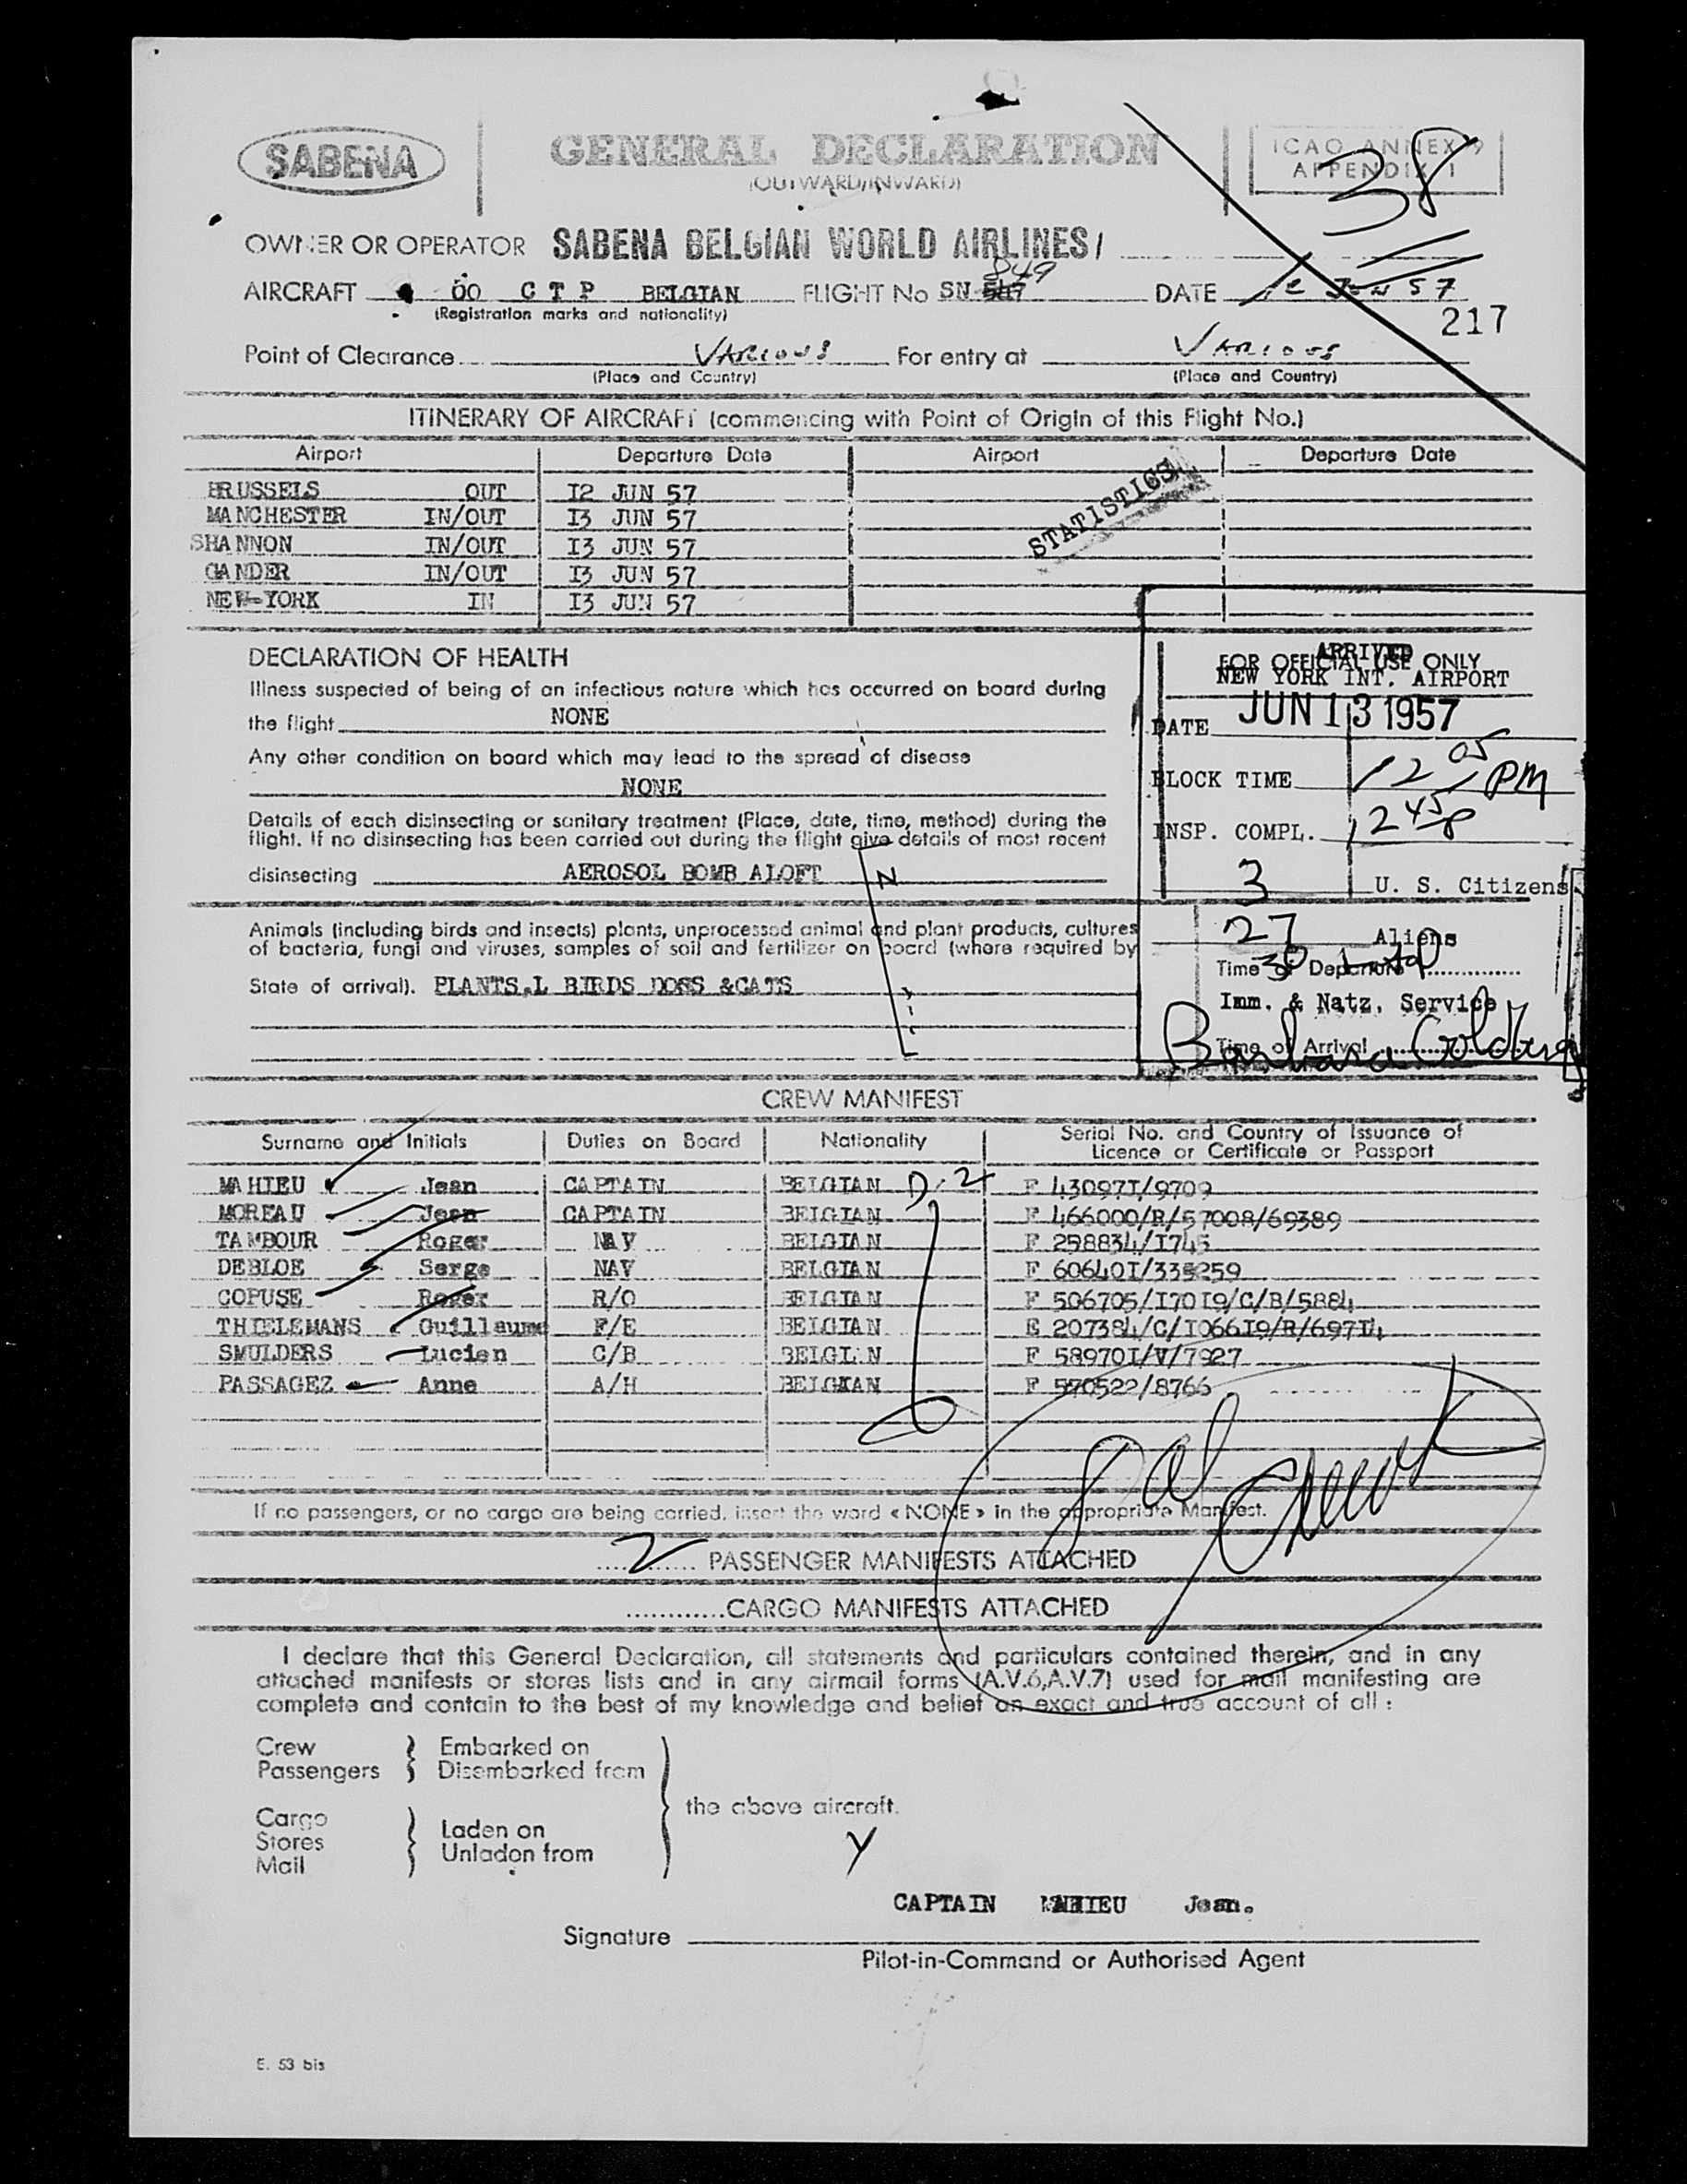 SABENA
GENERAL DECLARATION
(OUTWARD/INWARD)
ICAO ANNEX 9
APPENDIX 1
38
OWNER OR OPERATOR SABENA BELGIAN WORLD AIRLINES/
849
AIRCRAFT OO C T P BELGIAN FLIGHT No SN 547 DATE 12 JUN 57
(Registration marks and nationality)
217
Point of Clearance VARIOUS For entry at VARIOUS
(Place and Country) (Place and Country)
ITINERARY OF AIRCRAFT (commencing with Point of Origin of this Flight No.)
Airport Departure Date Airport Departure Date
BRUSSELS OUT I2 JUN 57
MANCHESTER IN/OUT I3 JUN 57
SHANNON IN/OUT I3 JUN 57
GANDER IN/OUT I3 JUN 57
NEW-YORK IN I3 JUN 57
STATISTICS
DECLARATION OF HEALTH
Illness suspected of being of an infectious nature which has occurred on board during
the flight NONE
Any other condition on board which may lead to the spread of disease
NONE
Details of each disinsecting or sanitary treatment (Place, date, time, method) during the
flight. If no disinsecting has been carried out during the flight give details of most recent
disinsecting AEROSOL BOMB ALOFT N
Animals (including birds and insects) plants, unprocessed animal and plant products, cultures
of bacteria, fungi and viruses, samples of soil and fertilizer on board (where required by
State of arrival). PLANTS.L BIRDS DOGS &CATS
FOR OFFICIAL USE ONLY
ARRIVED
NEW YORK INT. AIRPORT
DATE JUN 13 1957
BLOCK TIME 12 05 PM
INSP. COMPL. 12 45 P
3 U. S. Citizens
27 Aliens
30 total
Time of Departure
Imm. & Natz. Service
Time of Arrival
Barbara Goldberg
CREW MANIFEST
Surname and Initials Duties on Board Nationality Serial No. and Country of Issuance of
Licence or Certificate or Passport
MAHIEU Jean CAPTAIN BELGIAN D-2 F 43097I/9709
MOREAU Jean CAPTAIN BELGIAN F 466000/R/57008/69389
TAMBOUR Roger NAV BELGIAN F 298834/I745
DEBLOE Serge NAV BELGIAN F 60640I/335259
COPUSE Roger R/O BELGIAN F 506705/I70I9/C/B/5884
THIELEMANS Guillaume F/E BELGIAN E 207384/C/I066I9/R/697I4
SMULDERS Lucien C/B BELGIAN F 58970I/V/7927
PASSAGEZ Anne A/H BELGIAN F 590522/8766
If no passengers, or no cargo are being carried, insert the word « NONE » in the appropriate Manifest.
2 PASSENGER MANIFESTS ATTACHED
CARGO MANIFESTS ATTACHED
I declare that this General Declaration, all statements and particulars contained therein, and in any
attached manifests or stores lists and in any airmail forms (A.V.6,A.V.7) used for mail manifesting are
complete and contain to the best of my knowledge and belief an exact and true account of all :
Crew Embarked on
Passengers Disembarked from
the above aircraft.
Cargo
Stores Laden on
Mail Unladen from
Y
CAPTAIN MAHIEU Jean.
Signature
Pilot-in-Command or Authorised Agent
E. 53 bis